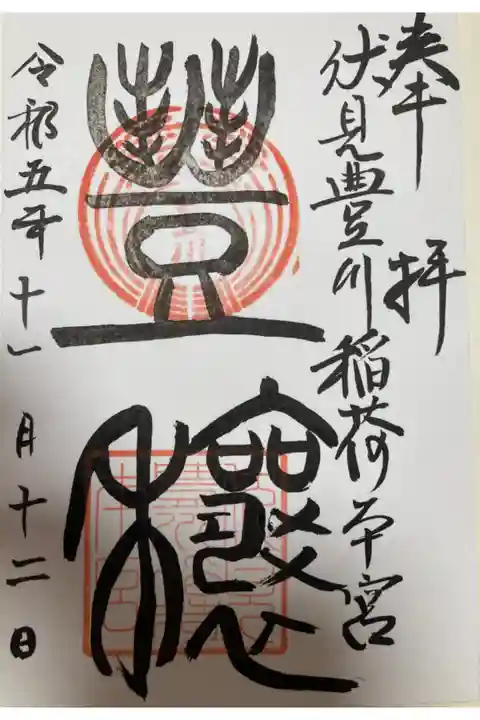 奉拝
伏見豊川稲荷本宮
豐穰
令和五年十一月十二日